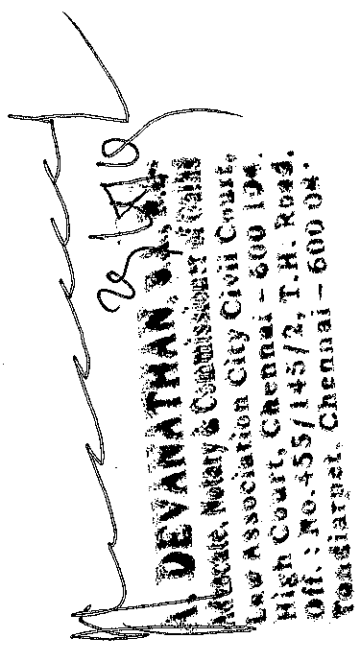 A. DEVANATHAN,
Advocate, Notary & Commissioner of Oaths
Law Association City Civil Court,
High Court, Chennai - 600 104.
Off.: No.455/145/2, T.H. Road,
Tondiarpet, Chennai - 600